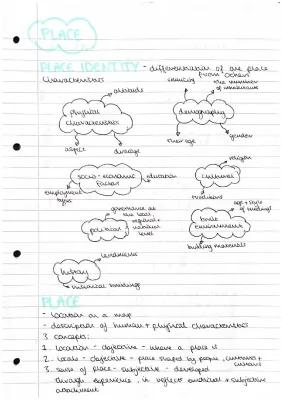 PLACE
PLACE IDENTITY - differentiation of one place from other
characteristics
ethnicity
the number of inhabitants
altitude
physical characteristics
demography
gender
their age
aspect
drainage
religion
socio-economic factor
education
cultural
employment type
traditions
governance at the local, regional + national level
age + style of building
political
built environment
building materials
landmarks
history
historical building
PLACE
- location on a map
- description of human + physical characteristics
3 concepts:
1. location - objective - where a place is
2. locale - objective - place shaped by people, cultures + customs
3. sense of place - subjective - developed
through experience, it reflect emotional + subjective
attachment